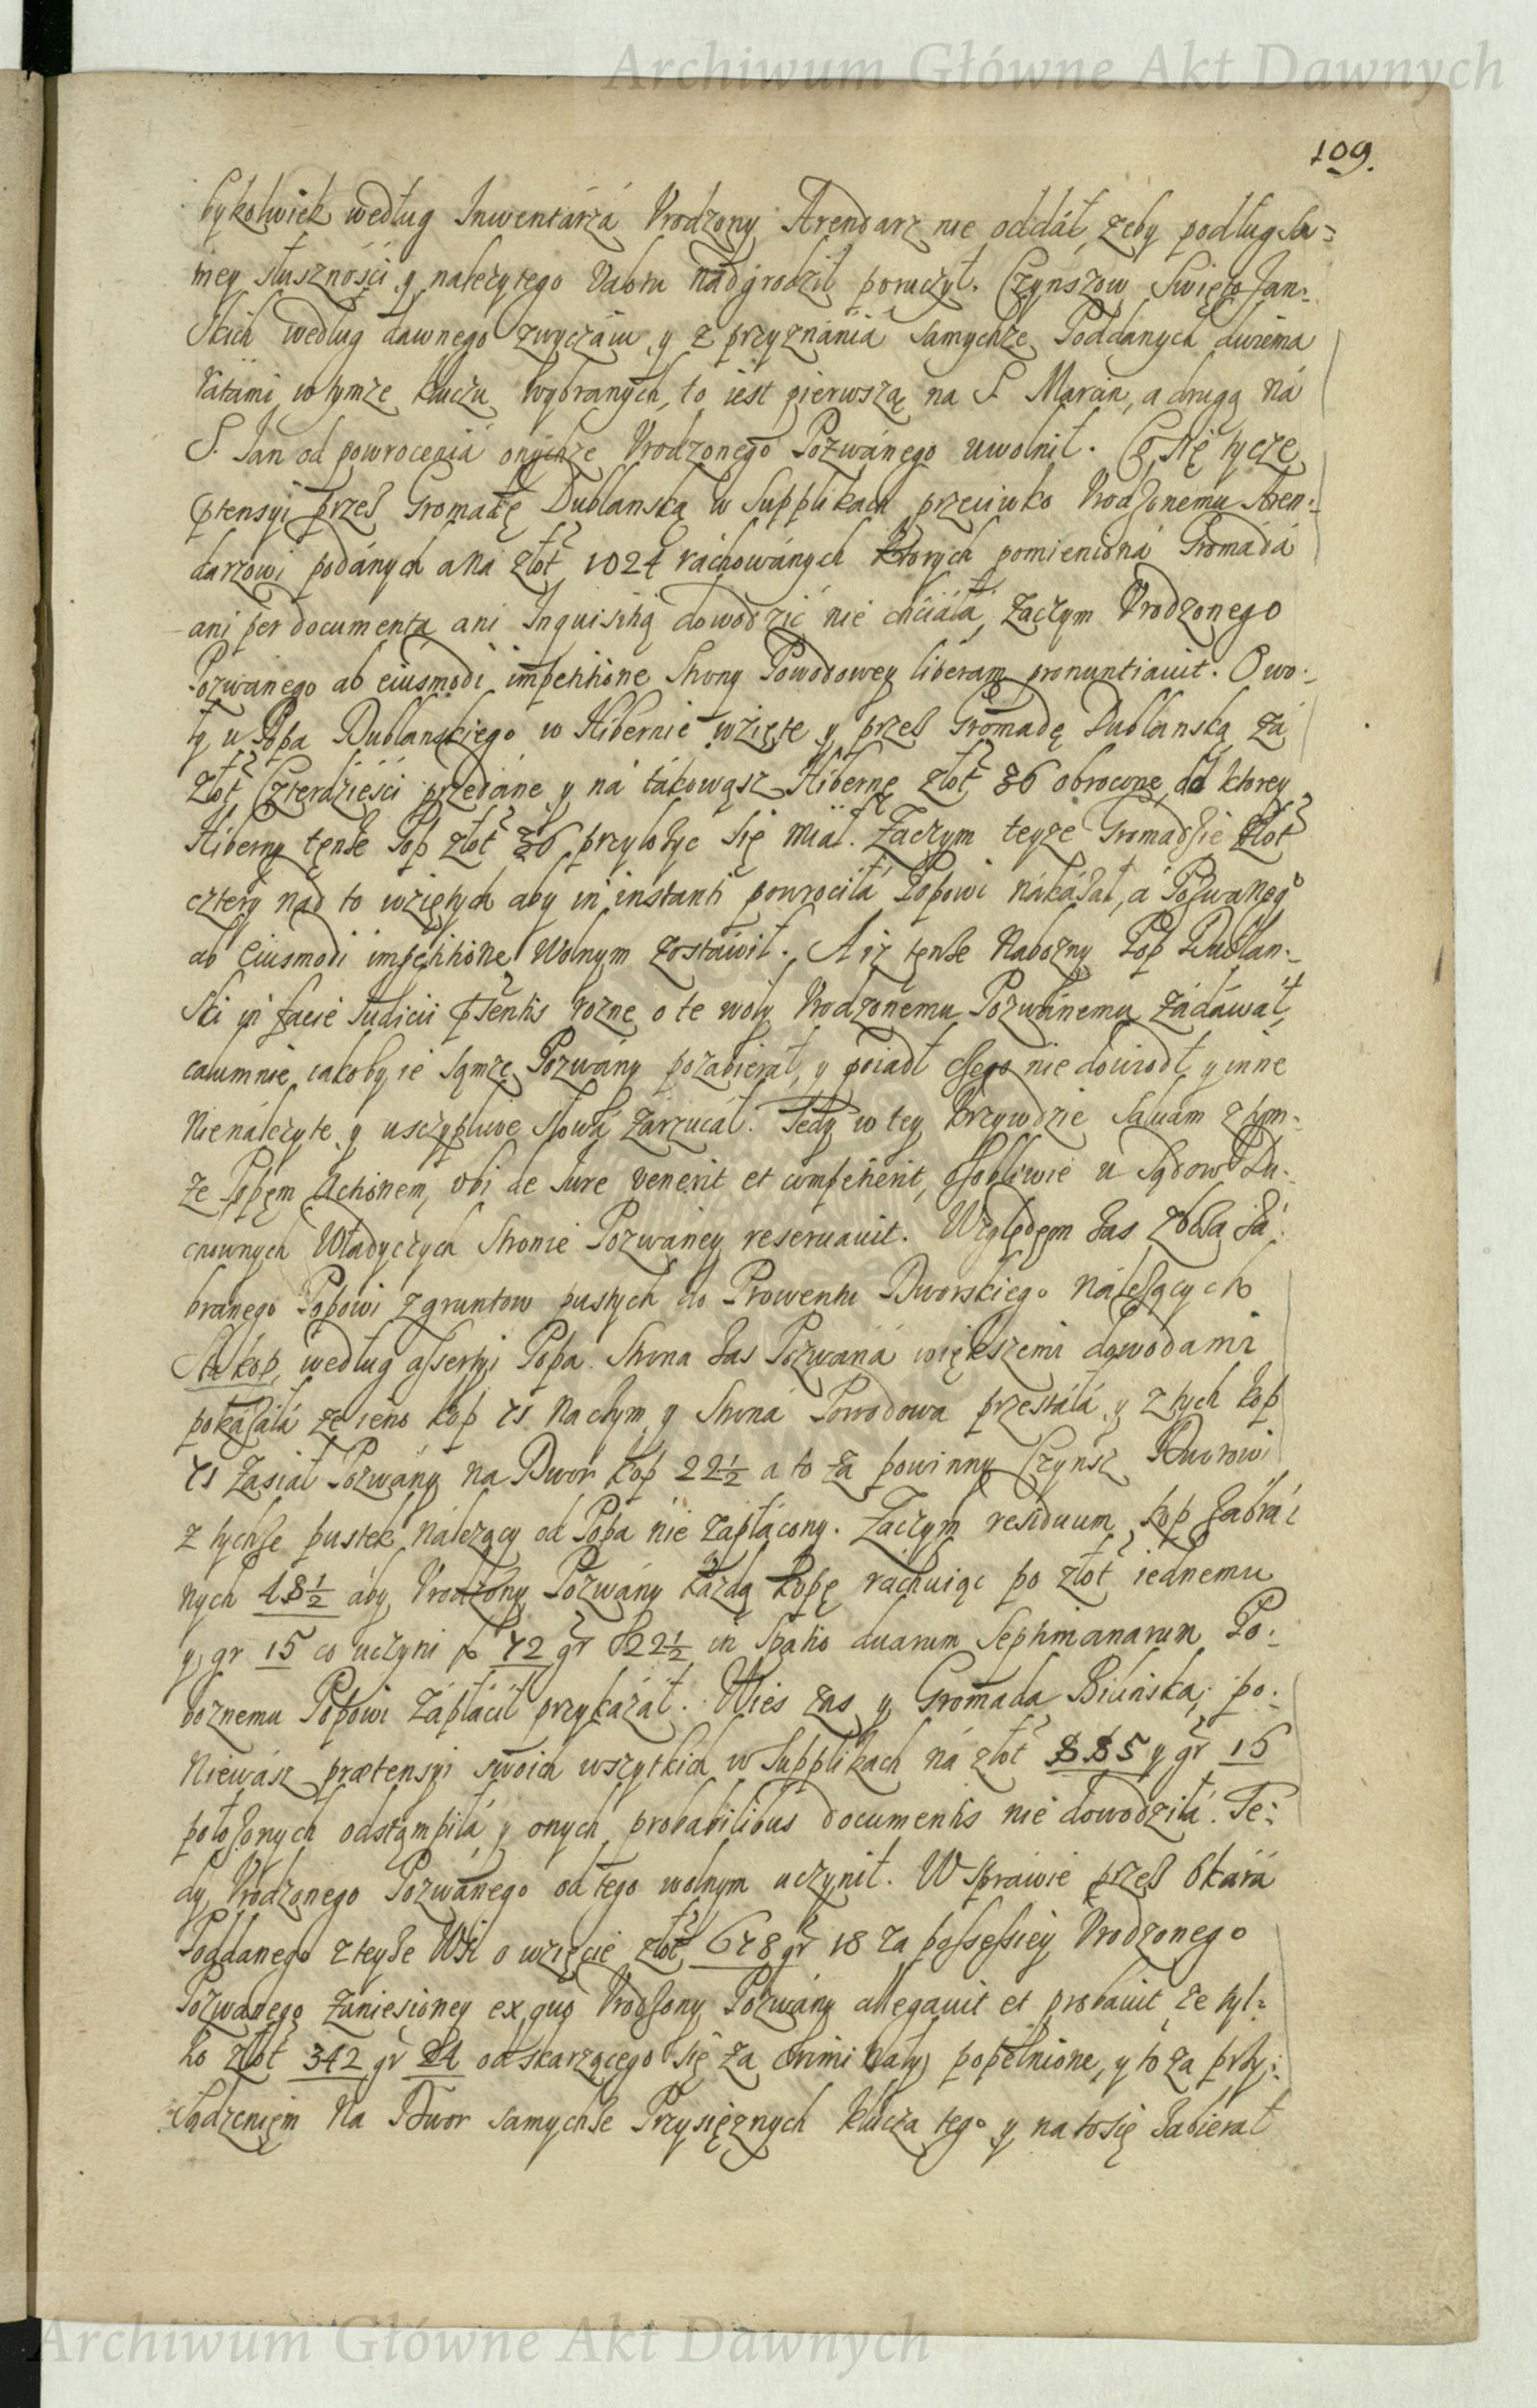 Archiwum Główne Akt Dawnych
109.
bykolwiek według Inwentarza Vrodzony Arendarz nie oddał, żeby podług sa=
mey słuszności y należytego valoru nadgrodził poruczył. Czynszow Swięto Jan:
skich według dawnego zwyczaiu y z przyznánia samychże Poddanych dwiema
ratami w tymże kluczu wybranych, to iest pierwszą na S. Marcin, a drugą ná
S. Jan od powrocenia onychże Vrodzonego Pozwánego uwolnił. Co się tycze
ptensyi przes Gromadę Dublanską w Supplikach przeciwko Vrodzonemu Aren:
darzowi podánych a na złot 1024 ráchowánych ktorych pomieniona Gromádá
ani per documenta ani Inquisitią dowodzić nie chciáłá, zaczym Vrodzonego
Pozwánego ab eiusmodi impetitione Strony Powodowey liberum pronuntiavit. O wo:
ły u Popa Dublanskiego w Hibernie wzięte y przes Gromadę Dublanską zá
złot Czterdzieści przedáne y ná tákowąsz Hibernę złot 36 obrocone, do ktorey
Hiberny tenże Pop złot 36 przyłożyć się miał. Zaczym teyże Gromadzie złot
cztery nad to wziętych aby in instanti powrociłá Popowi nákazał, á Pozwanego
ab Eiusmodi impetitione wolnym zostáwił. A iż tenże Nabożny Pop Dublan:
ski in facie Iudicii pntis rożne o te woły Vrodzonemu Pozwánemu zádáwał
calumnie, iakoby ie sąmże Pozwány pozabierał, y poiadł czego nie dowiodł y inne
nienáleżyte y uszczypliwe słowá zárzucáł. Tedy w tey krzywdzie salvam z tym:
że Popem Actionem, ubi de Iure venerit et competierit, osobliwie u Sądow Du:
chownych Władyczych Stronie Pozwáney reservavit. Względem zas zboża zá:
branego Popowi z gruntow pustych do Prowentu Dworskiego nálezących
kop, według assertyi Popa. Strona zas Pozwáná większemi dowodami
pokazáłá że ieno kop 71 na czym y Stroná Powodowa przestáłá, y z tych kop
71 zasiał Pozwány na Dwor kop 22½ a to zá powinny Czynsz Dworowi
z tychże pustek nálezący od Popa nie zápłácony. Zaczym residuum kop zabrá:
nych 48½ aby Vrodzony Pozwány każdą kopę ráchuiąc po złot iednemu
y gr 15 co uczyni fl 72 gr 22½ in spatio duarum Septimanarum Po:
bożnemu Popowi zápłácił przykazáł. Wieś zas y Gromada Bilinska, po:
niewász prætensyi swoich wszytkich w Supplikach ná złot 885 y gr 15
położonych odstąmpiłá, y onych probabilibus documentis nie dowodziłá. Te:
dy Vrodzonego Pozwánego od tego wolnym uczynił. W sprawie przes Skárá
Poddanego z teyże Wsi o wzięcie złot 678 gr 18 za possessiey Vrodzonego
Pozwanego zaniesioney ex quo Vrodzony Pozwány allegavit et probavit że tyl=
ko złot 342 gr 24 od skarzącego się za criminały popełnione, y to za przy:
sądzeniem na Dwor samychże Przysięznych klucza tego y na to się zabierał
Archiwum Główne Akt Dawnych